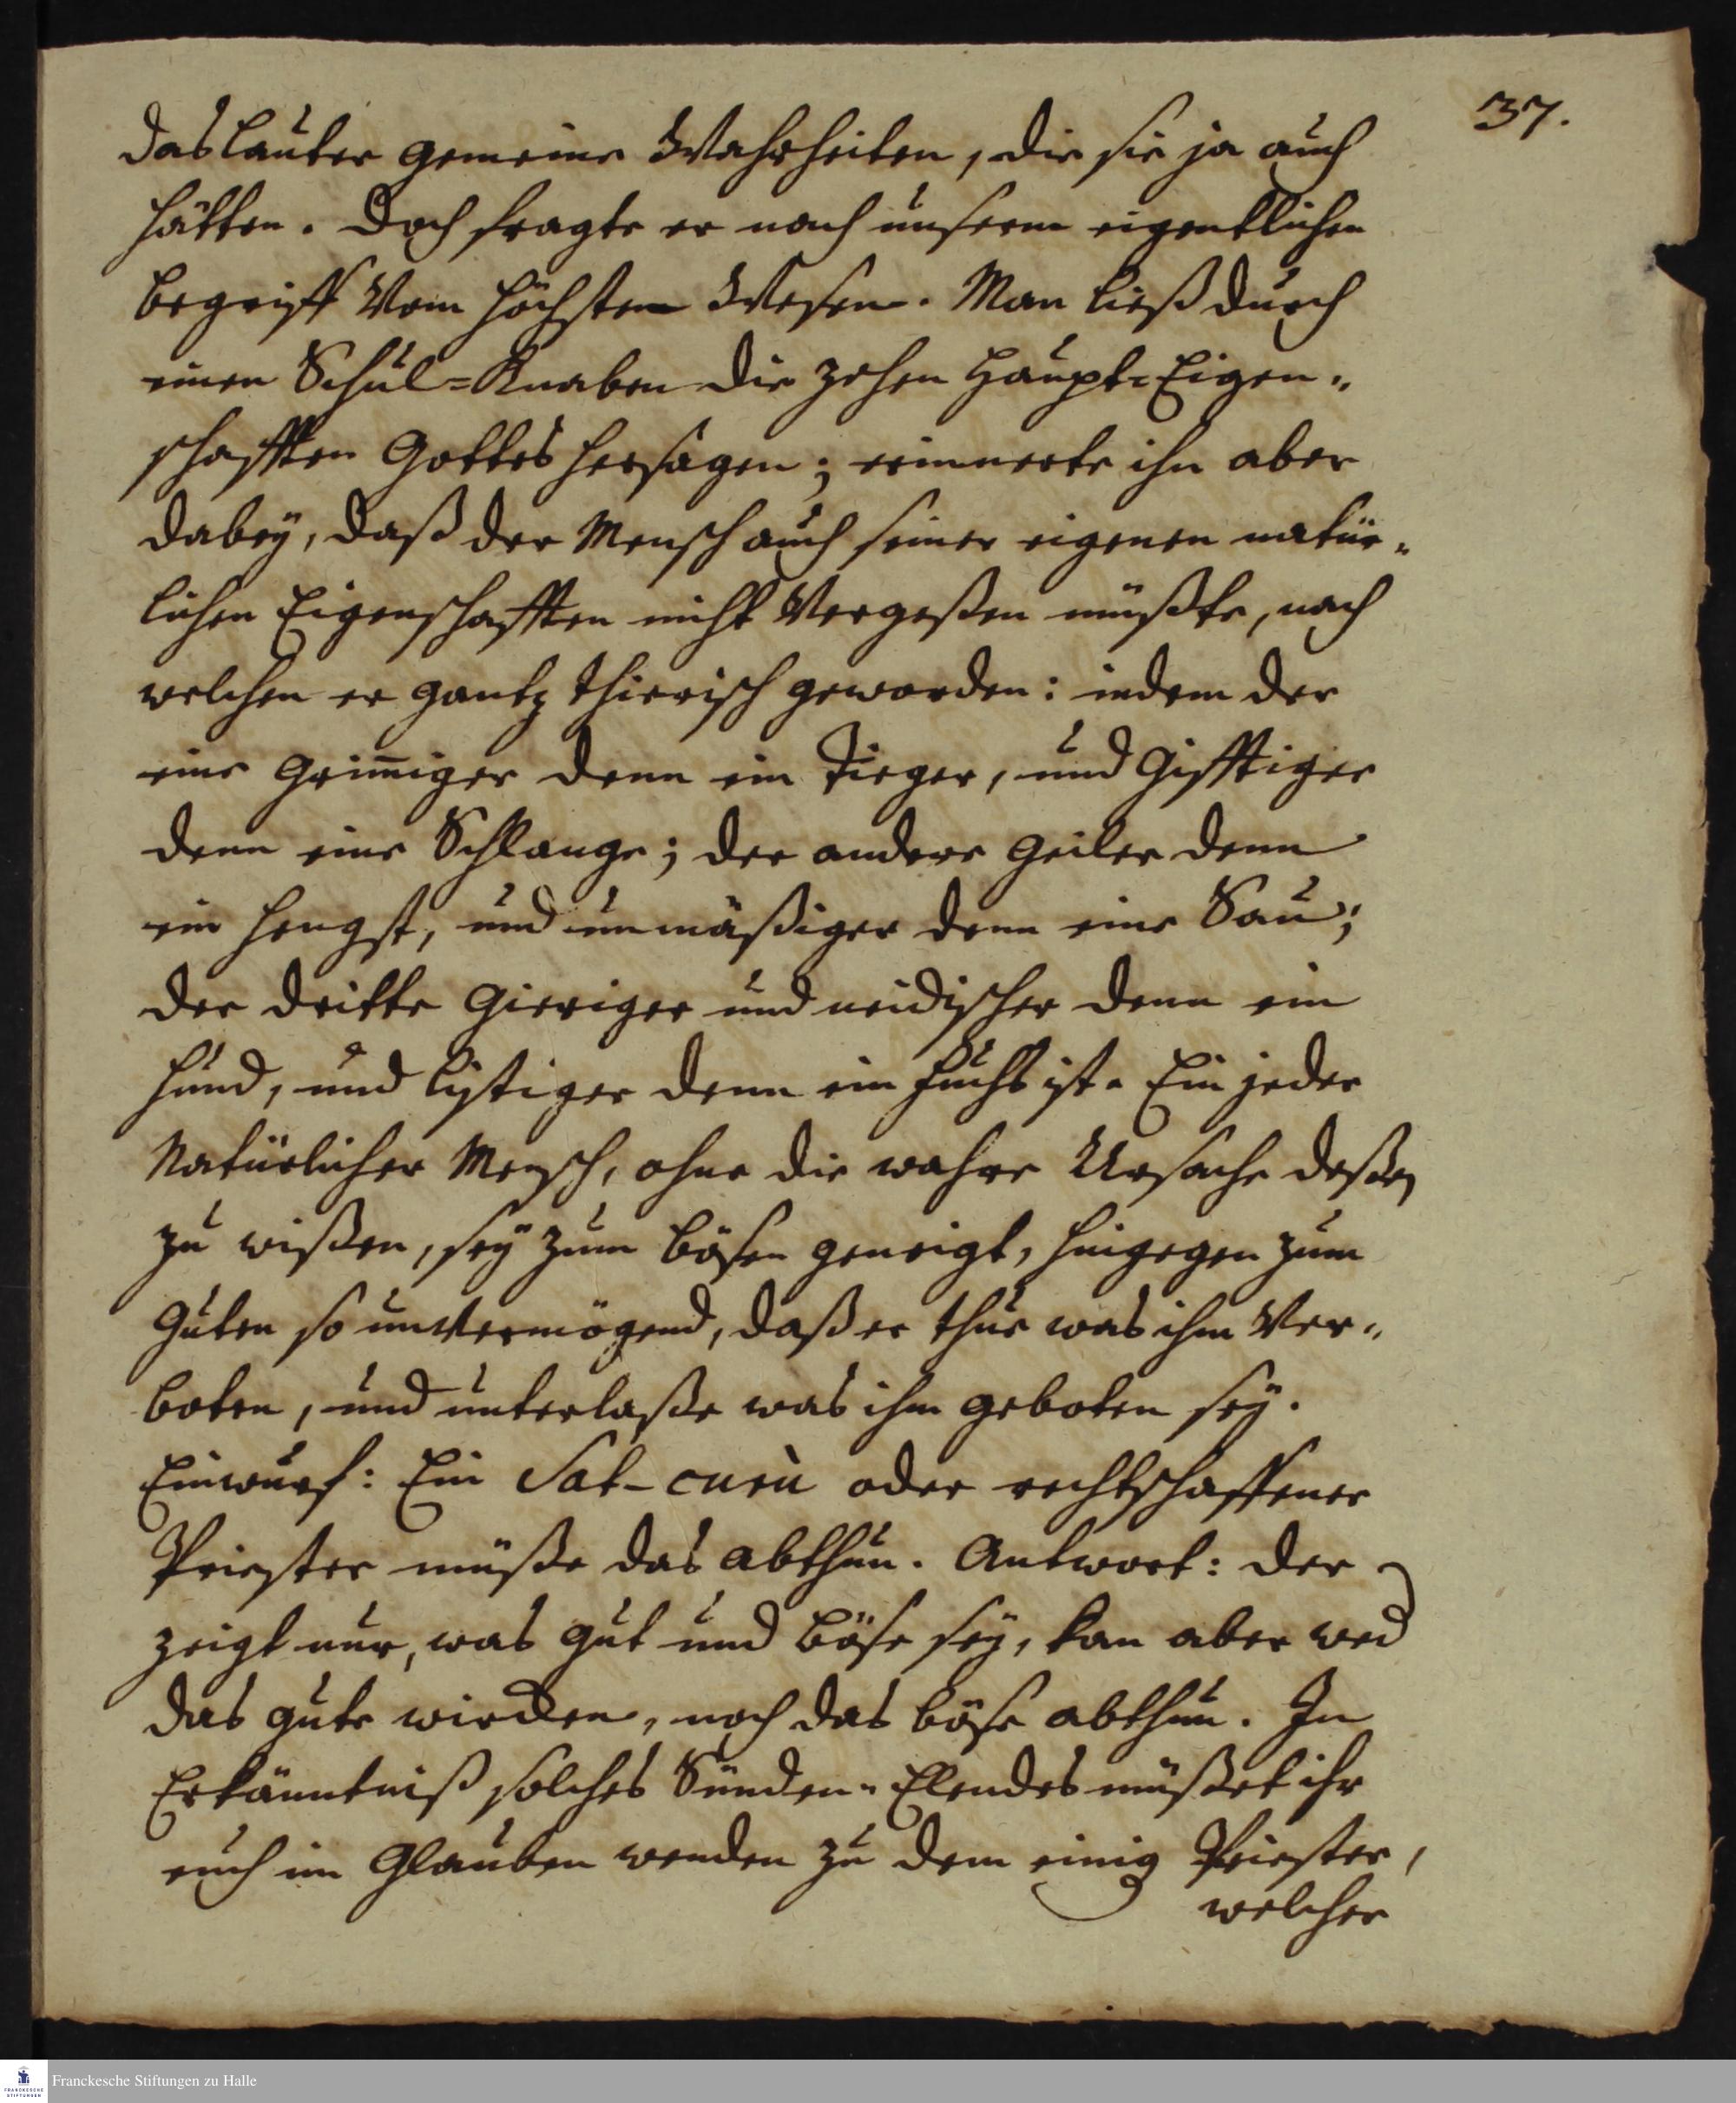 37.
das lauter gemeine Wahrheiten, die sie ja auch
hätten. Doch fragte er nach unserm eigentlichen
begriff Vom höchsten Wesen. Man ließ durch
einen Schul=Knaben die zehen Haupt=Eigen„
schafften Gottes hersagen; erinnerte ihn aber
dabeÿ, daß der Mensch auch seiner eigenen natür„
lichen Eigenschafften nicht Vergeßen müßte, nach
welchen er gantz thierisch geworden: indem der
eine Grim̄iger denn ein Tieger, und Gifftiger
denn eine Schlange; der andere Geiler denn
ein Hengst, und unmäßiger denn eine Sau;
der dritte Gieriger und neidischer denn ein
Hund, und listiger denn ein Fuchs ist. Ein jeder
Natürlicher Mensch, ohne die wahre Ursache deßen
zu wißen, seÿ zum bösen geneigt, hingegen zum
Guten so unvermögend, daß er thue was ihm Ver„
boten, und unterlaße was ihm geboten seÿ.
Einwurf: Ein Sat-curù oder rechtschaffener
Priester müße das abthun. Antwort: der
zeigt nur, was gut und böse seÿ, kan aber wed
das gute wircken, noch das böse abthun. In
Erkänntniß solches Sünden„Elendes müßet ihr
euch im Glauben wenden zu dem einig Priester,
welcher
Franckesche Stiftungen zu Halle
FRANCKESCHE
STIFTUNGEN